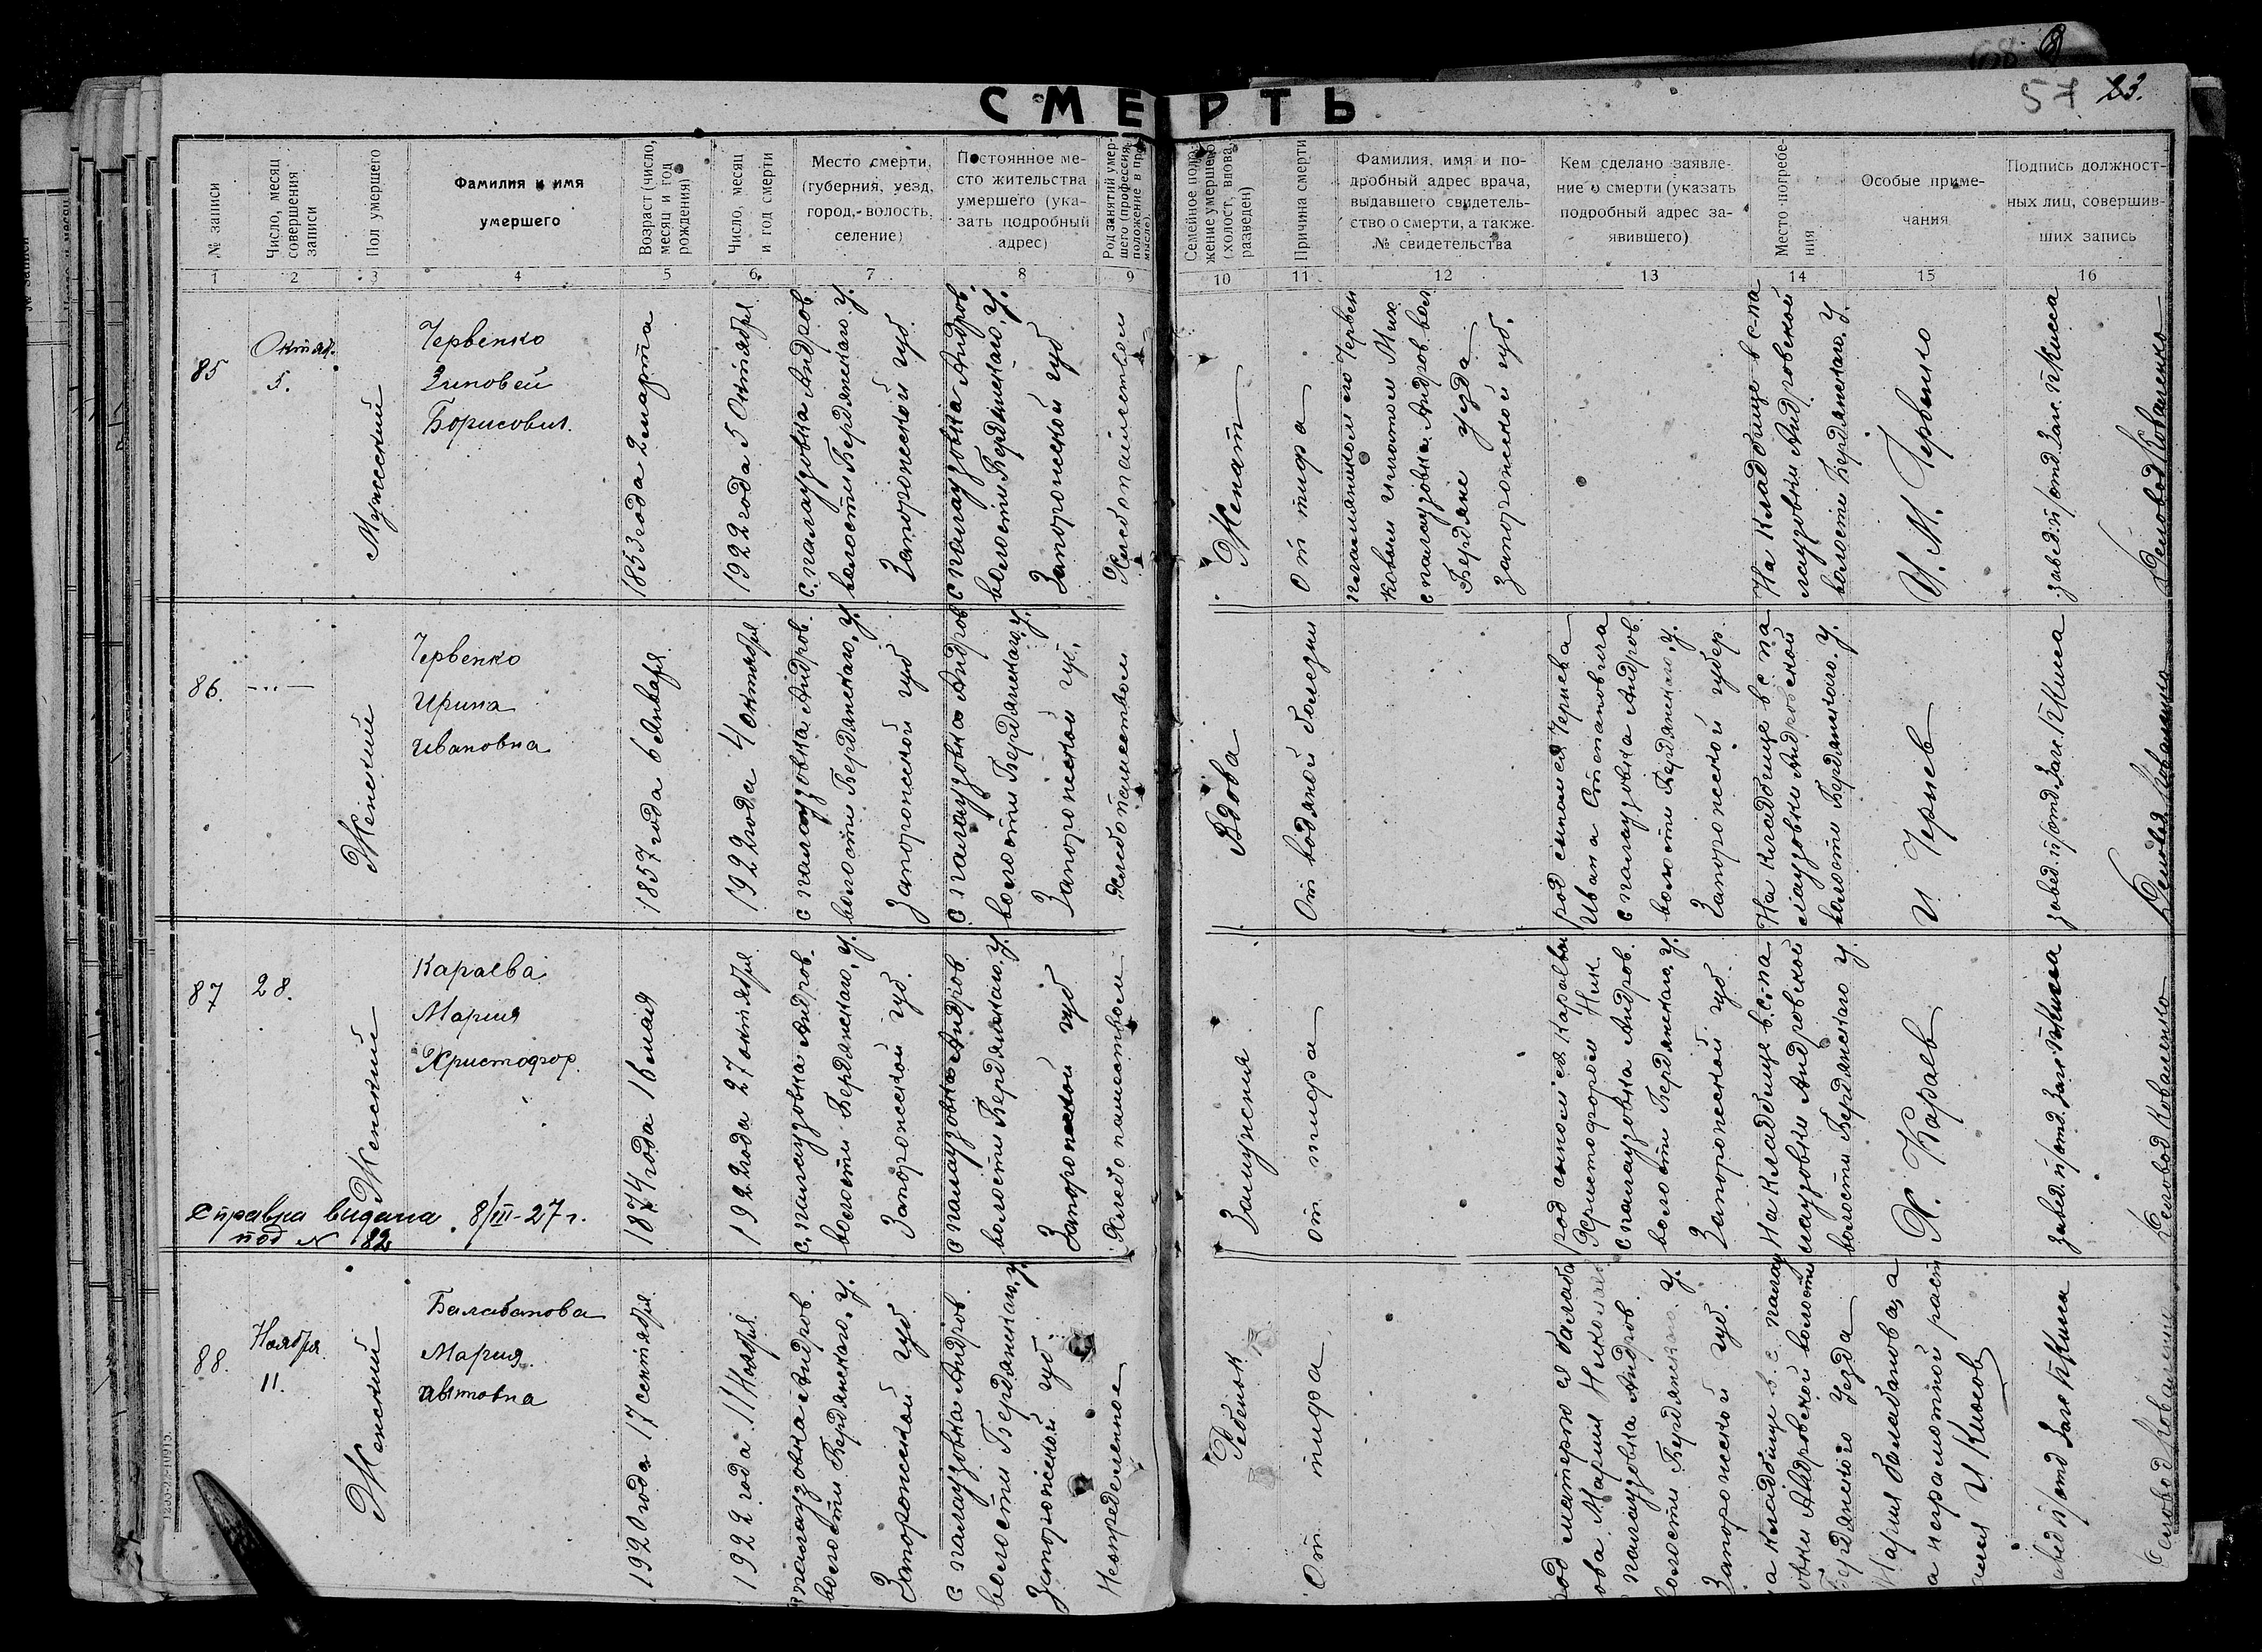 СМЕРТЬ
57 23.
№ записи
Число, месяц
совершения
записи
Пол умершего
Фамилия и имя
умершего
Возраст (число,
месяц и год
рождения)
Число, месяц
и год смерти
Место смерти,
(губерния, уезд,
город, волость,
селение)
Постоянное ме-
сто жительства
умершего (ука-
зать подробный
адрес)
Род занятий умер-
шего (профессия,
положение в про-
мысле).
Семейное поло-
жение умершего
(холост, вдова,
разведен)
Причина смерти
Фамилия, имя и по-
дробный адрес врача,
выдавшего свидетель-
ство о смерти, а также
№ свидетельства
Кем сделано заявле-
ние о смерти (указать
подробный адрес за-
явившего)
Место погребе-
ния
Особые приме-
чания
Подпись должност-
ных лиц, совершив-
ших запись
1 2 3 4 5 6 7 8 9 10 11 12 13 14 15 16
85
Октяб.
5.
Мужеский
Червенко
Зиновей
Борисович.
1853 года 2 марта
1922 года 5 Октября
с. палаузовка Андров.
волости Бердянскаго. У.
Запорожской губ.
с палаузовка Андров.
волости Бердянскаго. У.
Запорожской губ
Хлебопашеством
Женат
От тифа
племянником его Червен
ковым Игнатом Мих
с палаузовка. Андров вол
Бердянс уезда
запорожской губ.
На Кладбище в с. па
лаузовки Андровской
волости Бердянскаго. У.
И. М. Червенко
завед п/отд. Загс. ККисса
Деловод Коваленко
86.
Женский
Червенко
Ирина
ивановна
1857 года 6 Января
1922 года 4 октября
с палаузовка Андров.
волости Бердянскаго. У.
Запорожской губ
с палаузовка Андров
волости Бердянскаго. У.
Запорожской гу.
Хлебопашеством
Вдова
От водяной болезни
род сыном ея Чернева
Ивана Степановича
с палаузовка Андров
волости Бердянскаго. У.
Запорожской губер
На Кладбище в с. па
лаузовки Андровской
волости Бердянскаго. У.
И Чернев
завед. п/отд. Загс. ККисса
Деловод Коваленко
87
28.
Женский
Караева
Мария
Христофор.
1874 года 16 мая
1922 года 27 октября
с. палаузовка Андров.
волости Бердянскаго. У.
Запорожской губ.
с палаузовка Андров.
волости Бердянскаго. У.
Запорожской губ
Хлебопашеством
Замужния
от тифа
род сыном ея Караевы
Христофором Ник.
с палаузовка Андров.
волости Бердянскаго. У.
Запорожской губ.
На Кладбище в с. па
лаузовки Андровской
волости Бердянскаго У.
Х. Караев
завед. п/отд. Загс ККисса
Деловод Коваленко
Справка видана 8/III-27 г.
под № 82
88.
Ноября
11.
Женский
Балабанова
Мария
1920 года 17 сентября
1922 года 11 Ноября
палаузовка Андров.
волости Бердянскаго. У.
Запорожской губ.
с палаузовка Андров.
волости Бердянскаго. У.
Запорожской губ.
Неопределенное
Ребенок
От тифа
род матерью ея балаба
ова Мария Николаев
палаузовка Андров.
волости Бердянскаго. У.
Запорожской губ.
а кладбище в с. палау
овки Андровской волости
Бердянского Уезда
Мария балабанова, а
а неграмотной расп
завед п/отд Загс ККисса
Деловод Коваленко